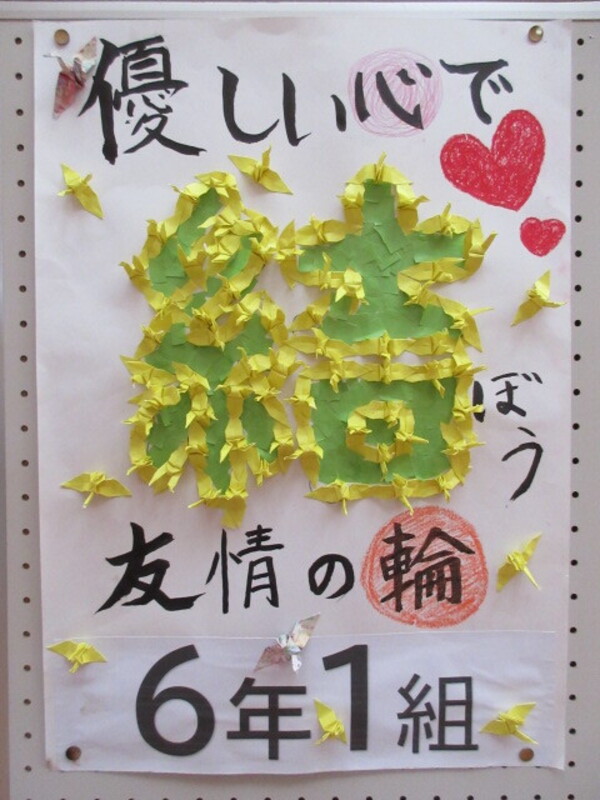 優しい心で
結ぼう
友情の輪
6年1組